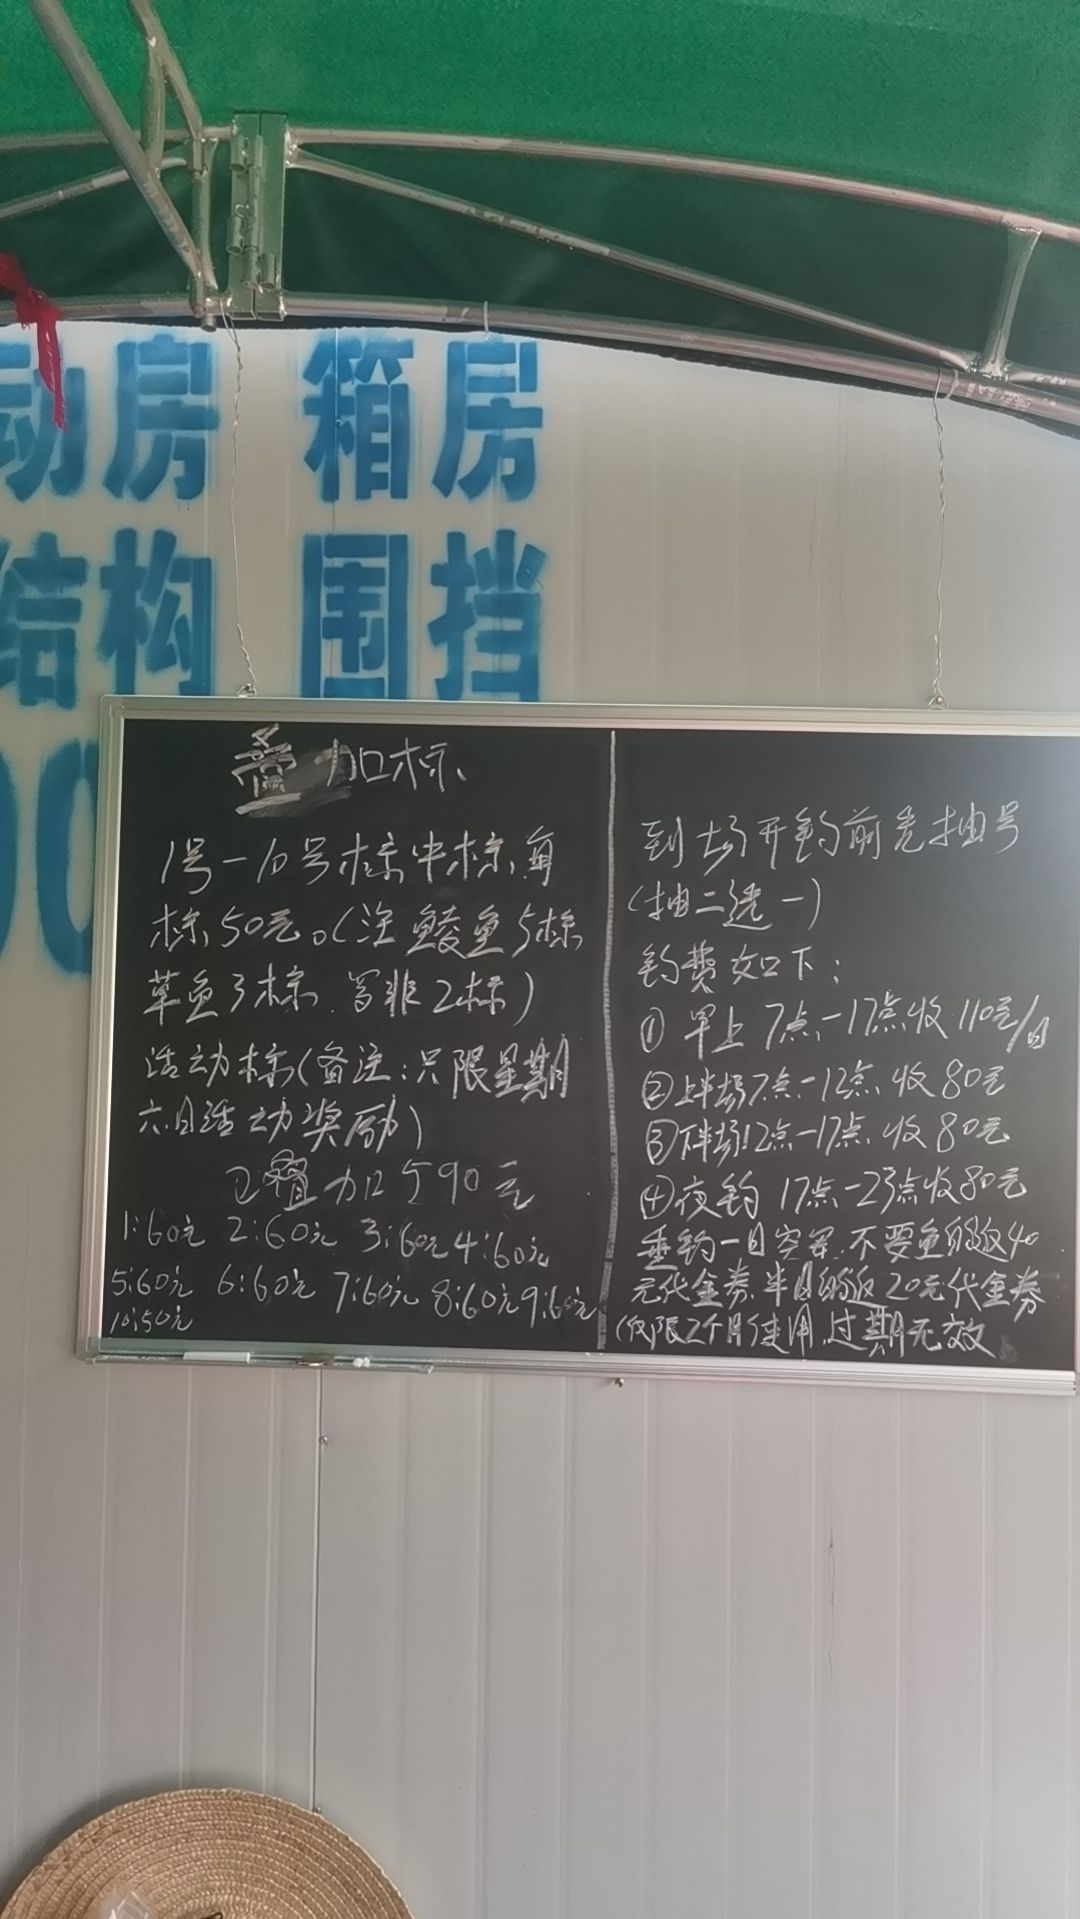 动房 箱房
结构 围挡
00
叠加标
1号一10号标中标,每
标50元。(注鲮鱼5标
草鱼3标 罗非2标)
活动标(备注:只限星期
六.日活动奖励)
已叠加590元
1:60元 2:60元 3:60元 4:60元
5:60元 6:60元 7:60元 8:60元 9:60元
10:50元
到场开钓前先抽号
(抽二选一)
钓费如下:
① 早上7点-17点收110元/日
②上半场7点-12点 收80元
③下半场12点-17点 收80元
④夜钓 17点-23点收80元
垂钓一日空军 不要鱼的返40
元代金券 半日的返20元代金券
(仅限2个月使用,过期无效